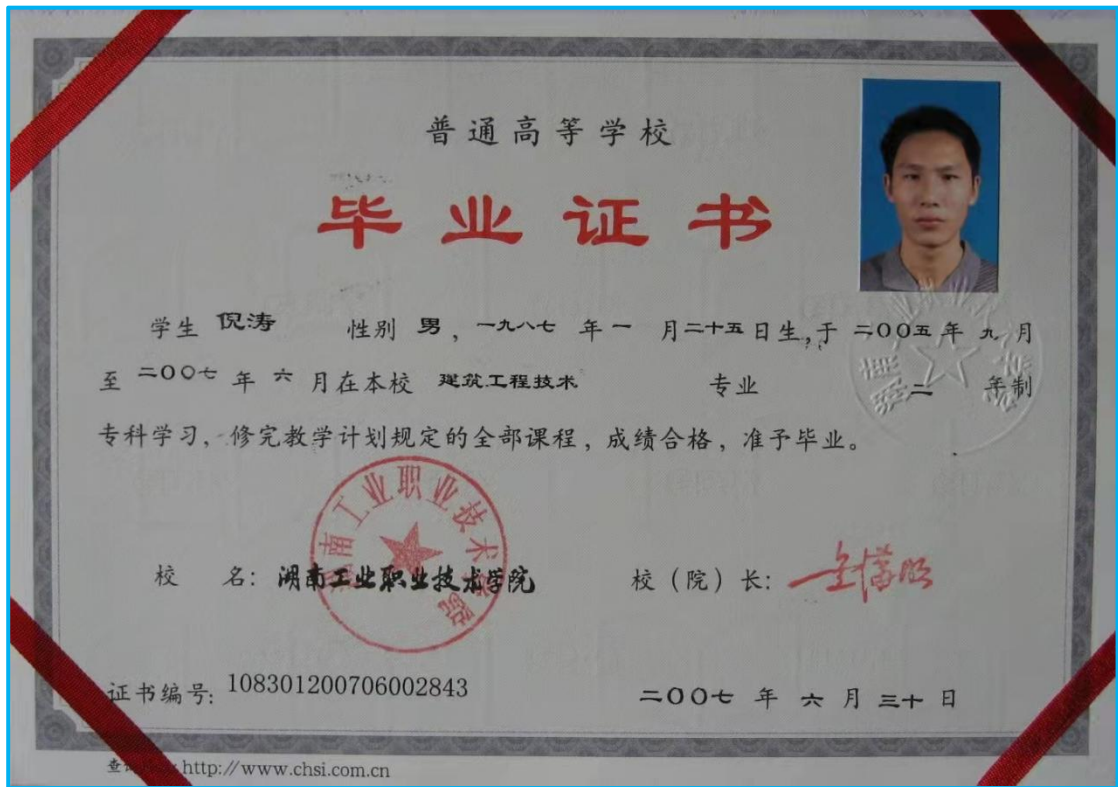 普通高等学校
毕业证书
学生 倪涛 性别 男，一九八七 年 一 月二十五日生，于 二〇〇五 年 九 月
至 二〇〇七 年 六 月在本校 建筑工程技术 专业 二 年制
专科学习，修完教学计划规定的全部课程，成绩合格，准予毕业。
湖南工业职业技术学院
校 名：湖南工业职业技术学院 校（院）长：
证书编号：108301200706002843 二〇〇七 年 六 月 三十 日
http://www.chsi.com.cn